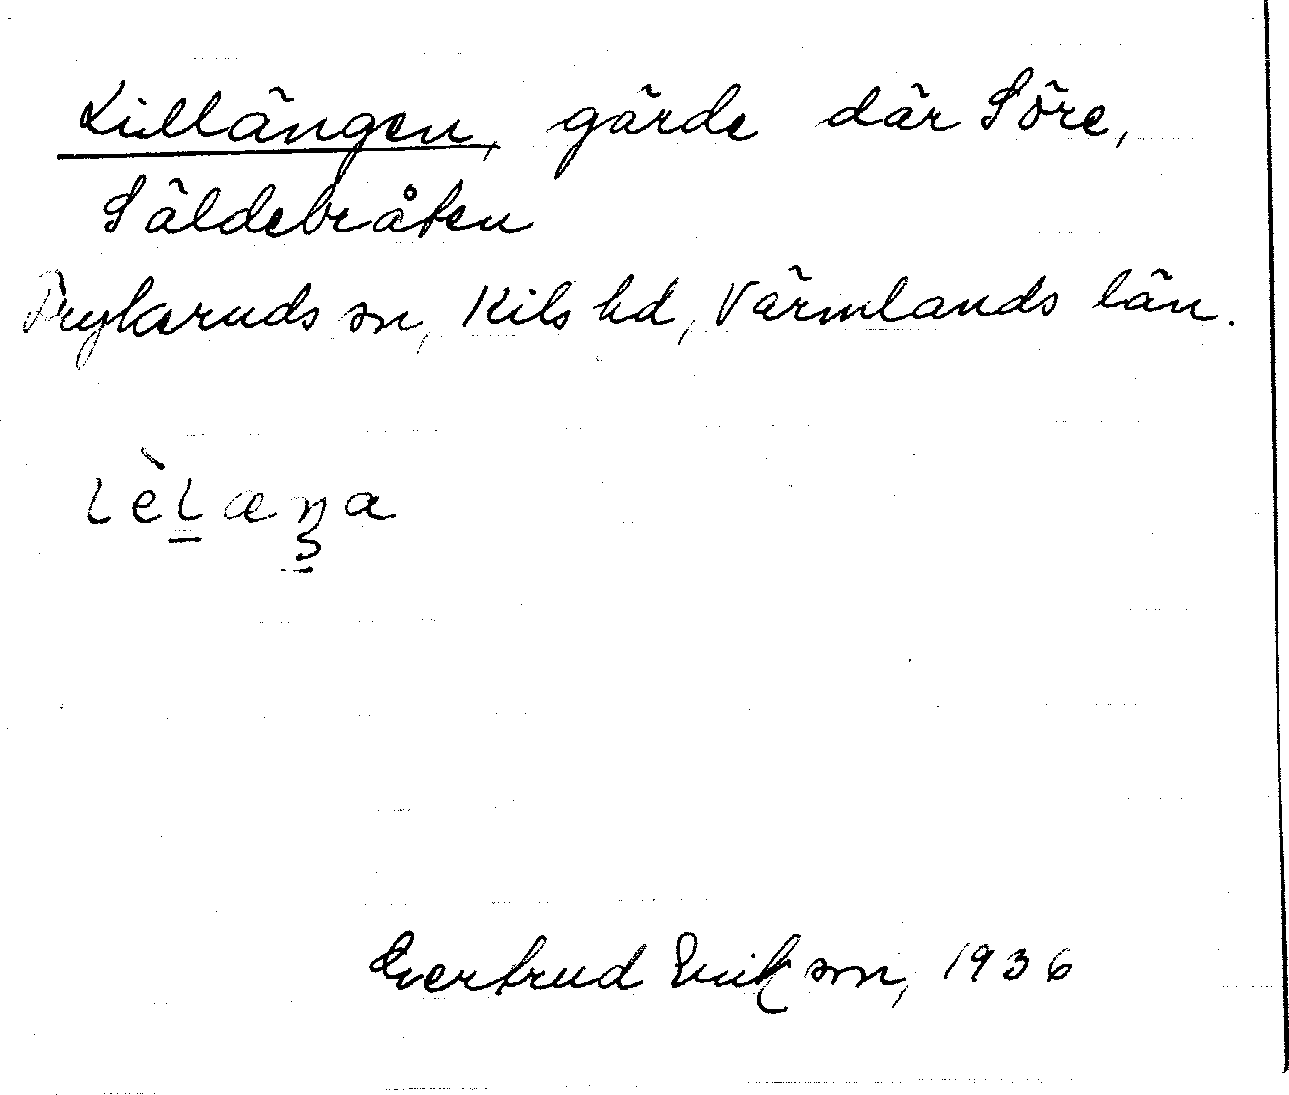 Lillängen, gärde där Söre,
Säldebråten
Frykeruds sn, Kils hd, Värmlands län.
lèlæŋa
Gertrud Erikson, 1936